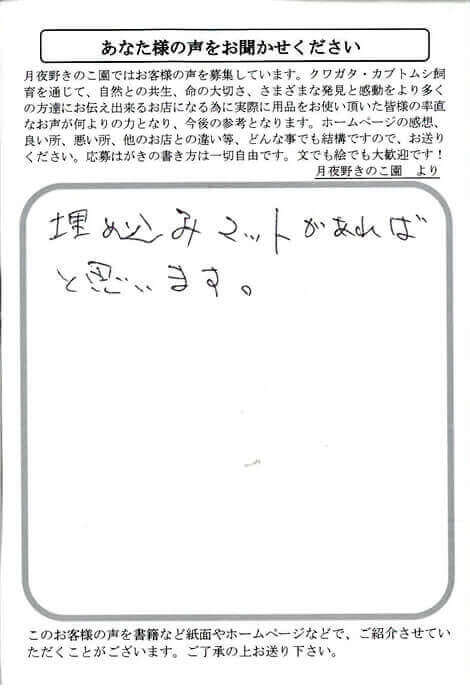 あなた様の声をお聞かせください
月夜野きのこ園ではお客様の声を募集しています。クワガタ・カブトムシ飼
育を通じて、自然との共生、命の大切さ、さまざまな発見と感動をより多く
の方達にお伝え出来るお店になる為に実際に用品をお使い頂いた皆様の率直
なお声が何よりの力となり、今後の参考となります。ホームページの感想、
良い所、悪い所、他のお店との違い等、どんな事でも結構ですので、お送り
ください。応募はがきの書き方は一切自由です。文でも絵でも大歓迎です！
月夜野きのこ園　より
埋め込みマットがあれば
と思います。
このお客様の声を書籍など紙面やホームページなどで、ご紹介させてい
ただくことがございます。ご了承の上お送り下さい。